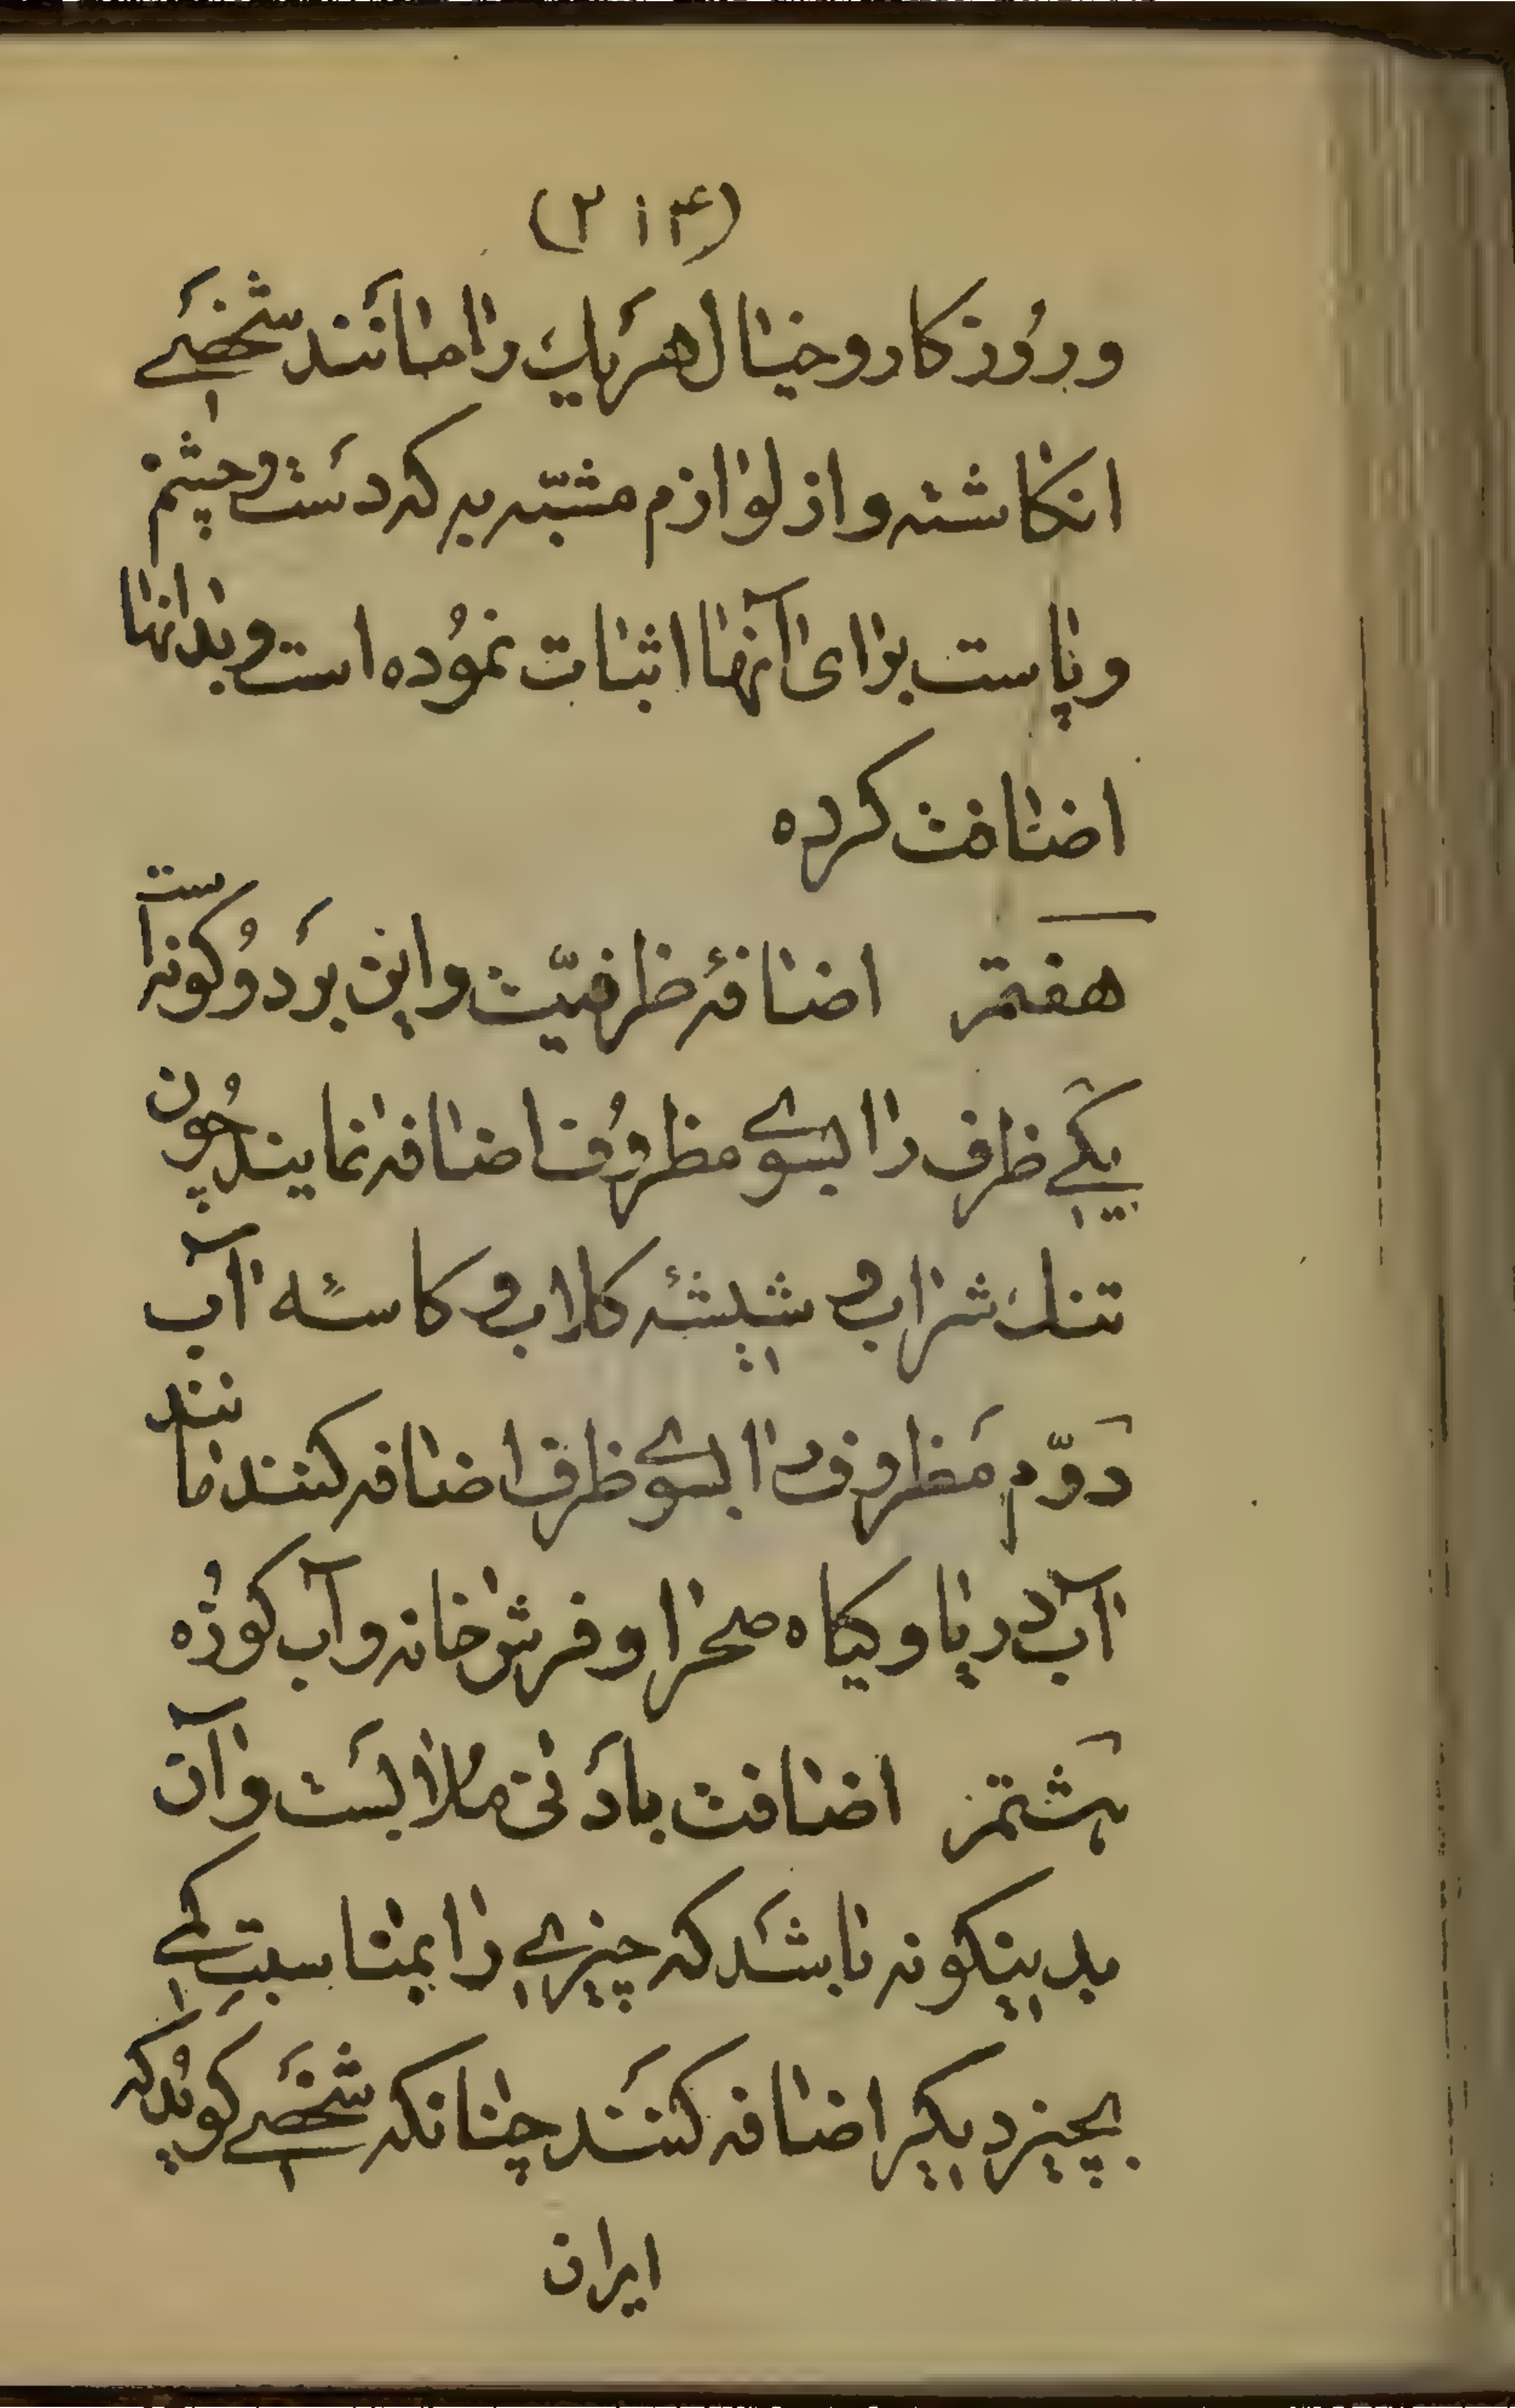 (۲۱۴)
وروُزکار وخیال هرَیک را مانَند شخصَے
انکاشته واز لوازم مشبّه به که دسَت وچشم
وپاست برای آنها اثبات نموُده است وبدانها
اضافت کرده
هفتم اضافهٔ ظرفیّت واین برَ دوُ کونه است
یکَے ظرف را بسوے مظروُف اضافه نمایند چوُن
تنک شراب و شیشهٔ کلاب و کاسهٔ آب
دوّم مَظروف را بسوے ظرف اضافه کنند مانند
آب دریا وکیاه صحرا و فرش خانه و آب کوزُه
هشتم اضافت بادَنی ملابسَت وآن
بدینکونه باشَد که چیزے را بمناسبتِ کمے
بچیز دیکر اضافه کننَد چنانکه شخصَے کویُد که
ایران